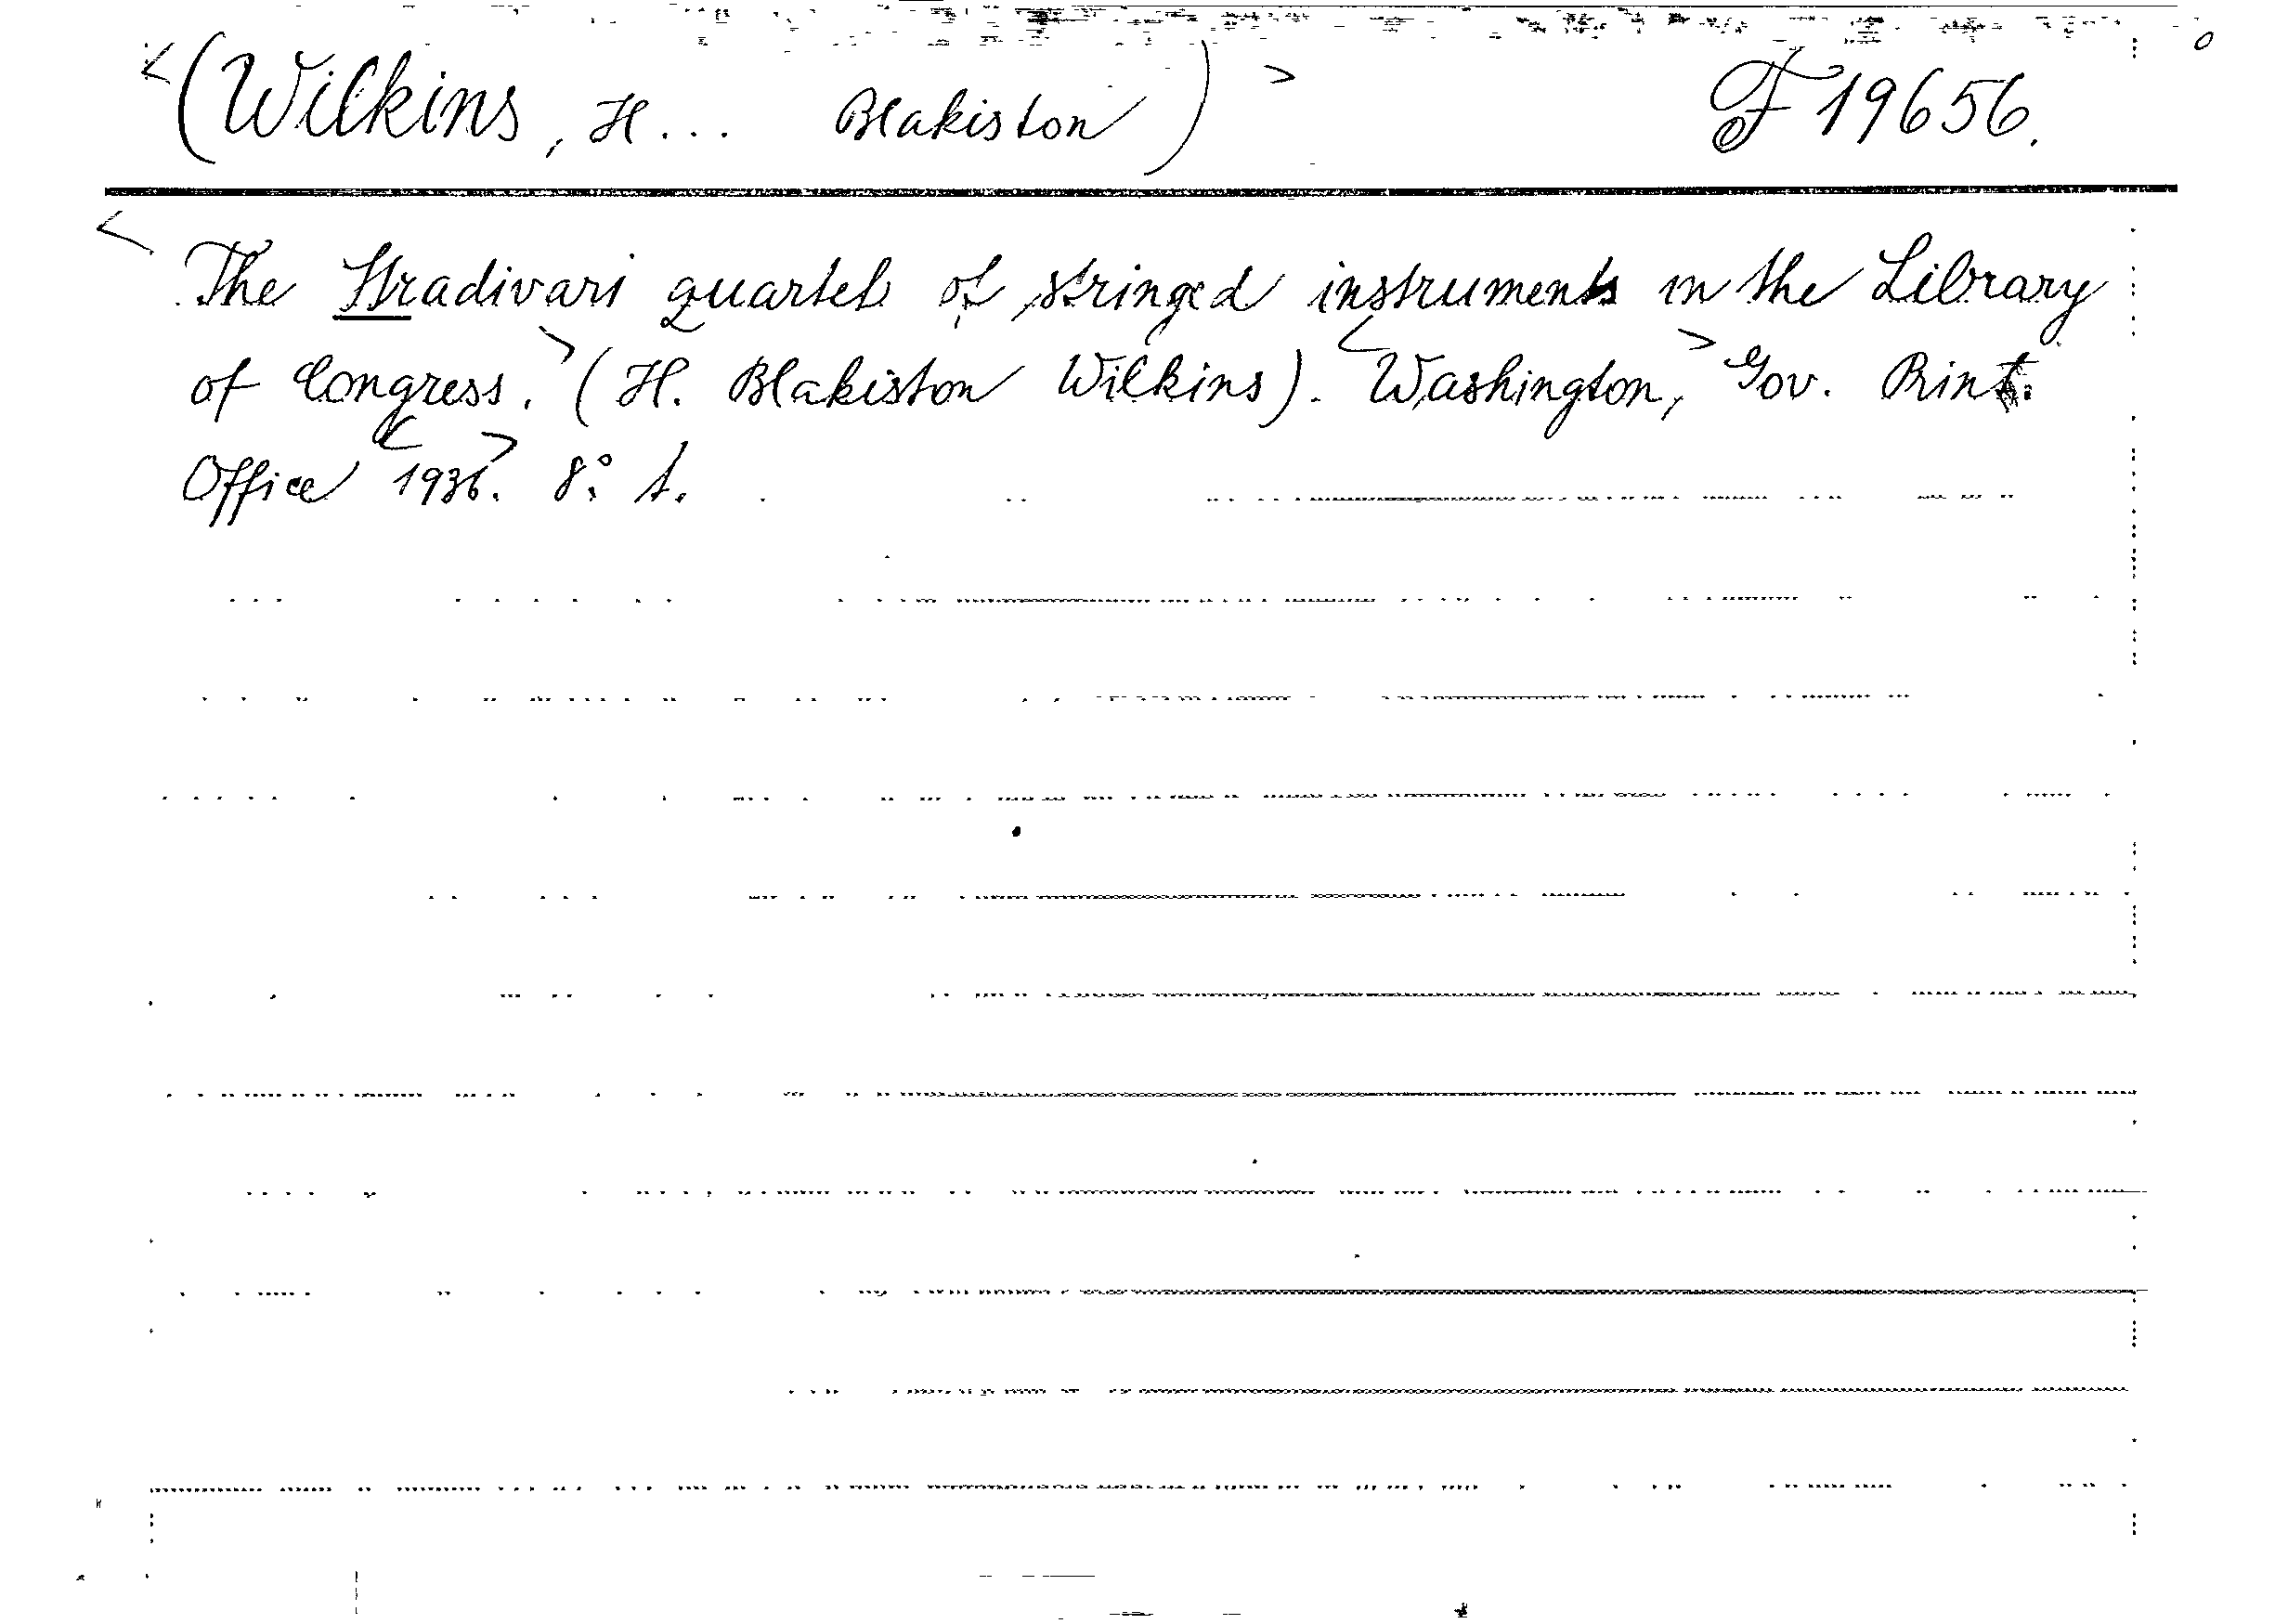 <(Wilkins, H... Blakiston)> F 19656.
<The Stradivari quartet of stringed instruments in the Library
of Congress.> (H. Blakiston Wilkins). <Washington,> Gov. Print.
Office <1936>. 8° 1.